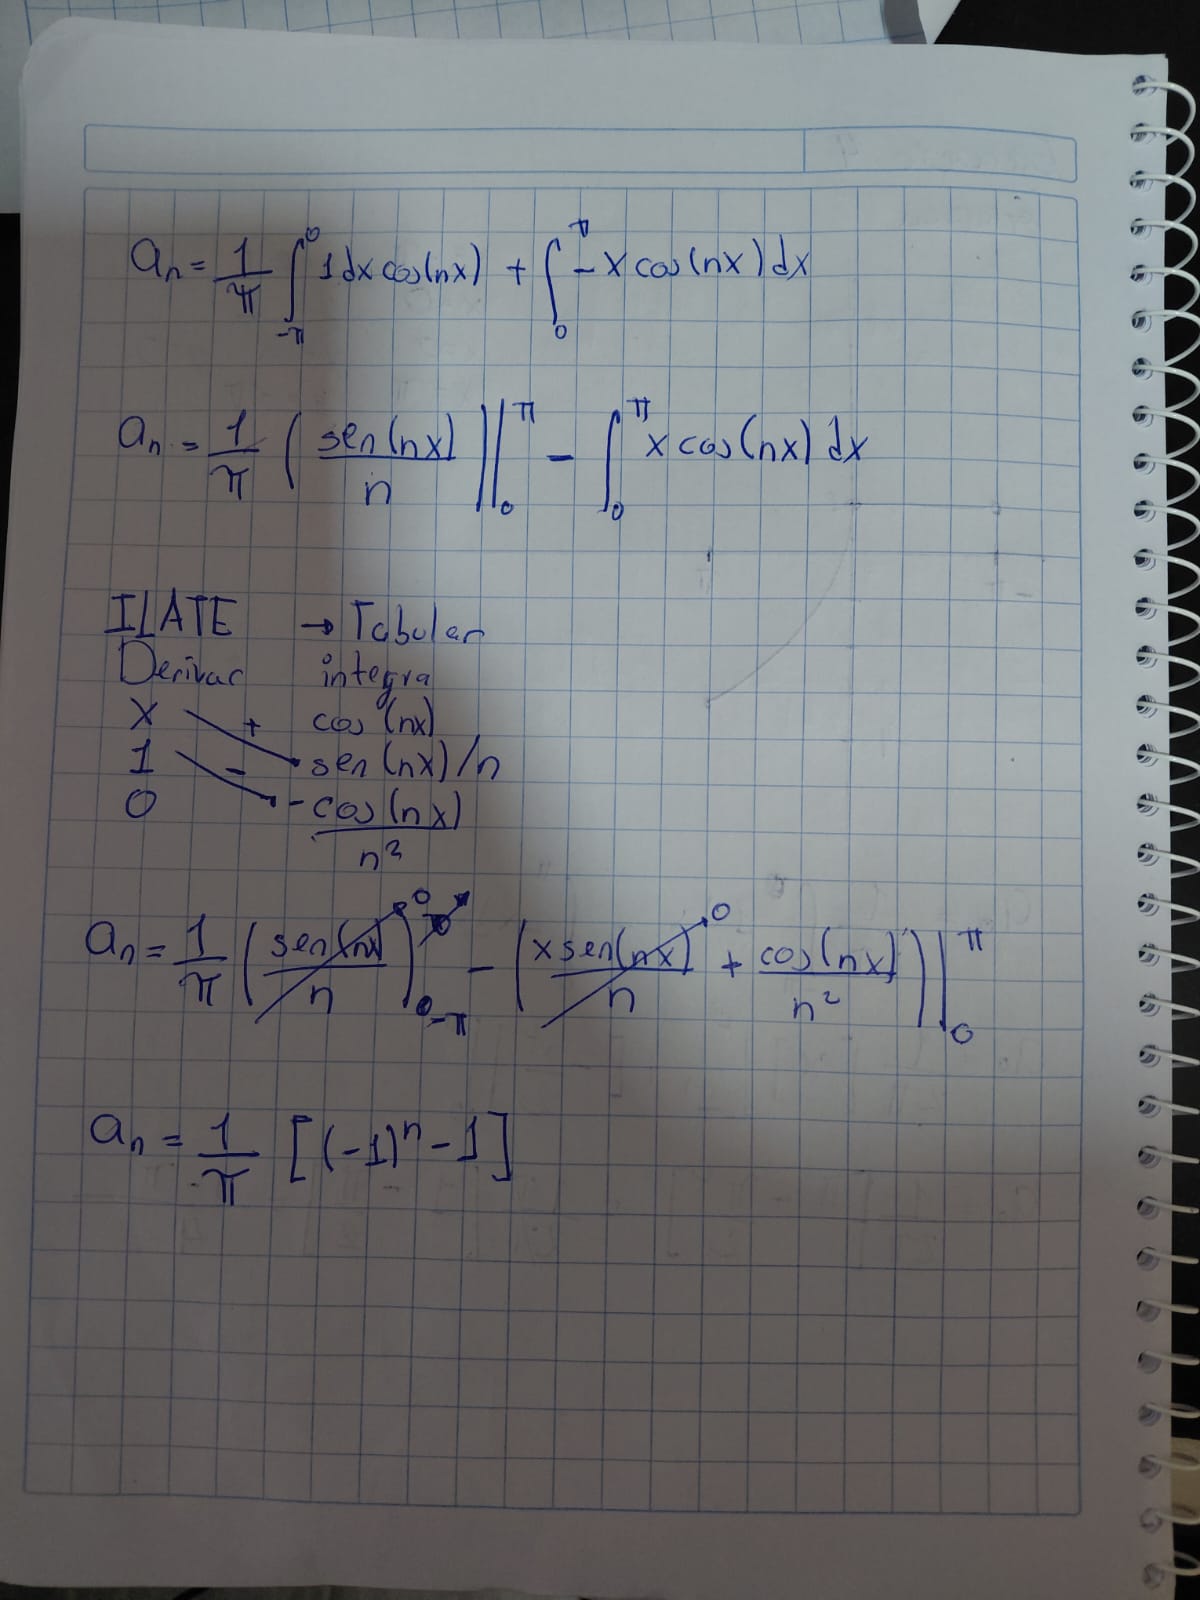 aₙ = 1/π ∫_{-π}^{0} 1dx cos(nx) + ∫_{0}^{π} -x cos(nx)dx
aₙ = 1/π ( sen(nx)/n ||_{0}^{π} - ∫_{0}^{π} x cos(nx) dx
ILATE → Tabular
Derivar integra
x + cos(nx)
1 - sen(nx)/n
0 -cos(nx)/n²
aₙ = 1/π ( sen(nx)/n )^{0}_{-π} - ( x sen(nx)/n ⁰ + cos(nx)/n² )|_{0}^{π}
aₙ = 1/π [(-1)ⁿ - 1]